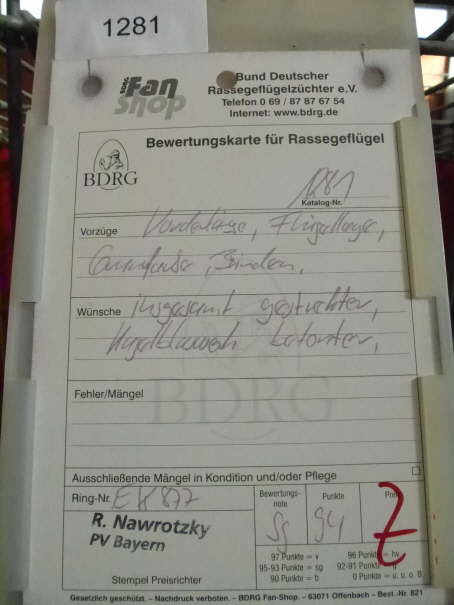 1281
BDRG Fan Shop
Bund Deutscher
Rassegeflügelzüchter e.V.
Telefon 0 69 / 87 87 67 54
Internet: www.bdrg.de
Bewertungskarte für Rassegeflügel
BDRG
1281
Katalog-Nr.
Vorzüge Vorderlänge, Flügellage,
Grundfarbe, Binden,
Wünsche insgesamt gestreckter,
betonter,
Fehler/Mängel
BDRG
Ausschließende Mängel in Kondition und/oder Pflege
Ring-Nr. EK 877
Bewertungs-note Punkte
sg 94 Z
R. Nawrotzky
PV Bayern
Stempel Preisrichter
97 Punkte = v 96 Punkte = hv
95-93 Punkte = sg 92-91 Punkte
90 Punkte = b 0 Punkte = u. o. B
Gesetzlich geschützt. – Nachdruck verboten. – BDRG Fan-Shop. – 63071 Offenbach – Best.-Nr. 821